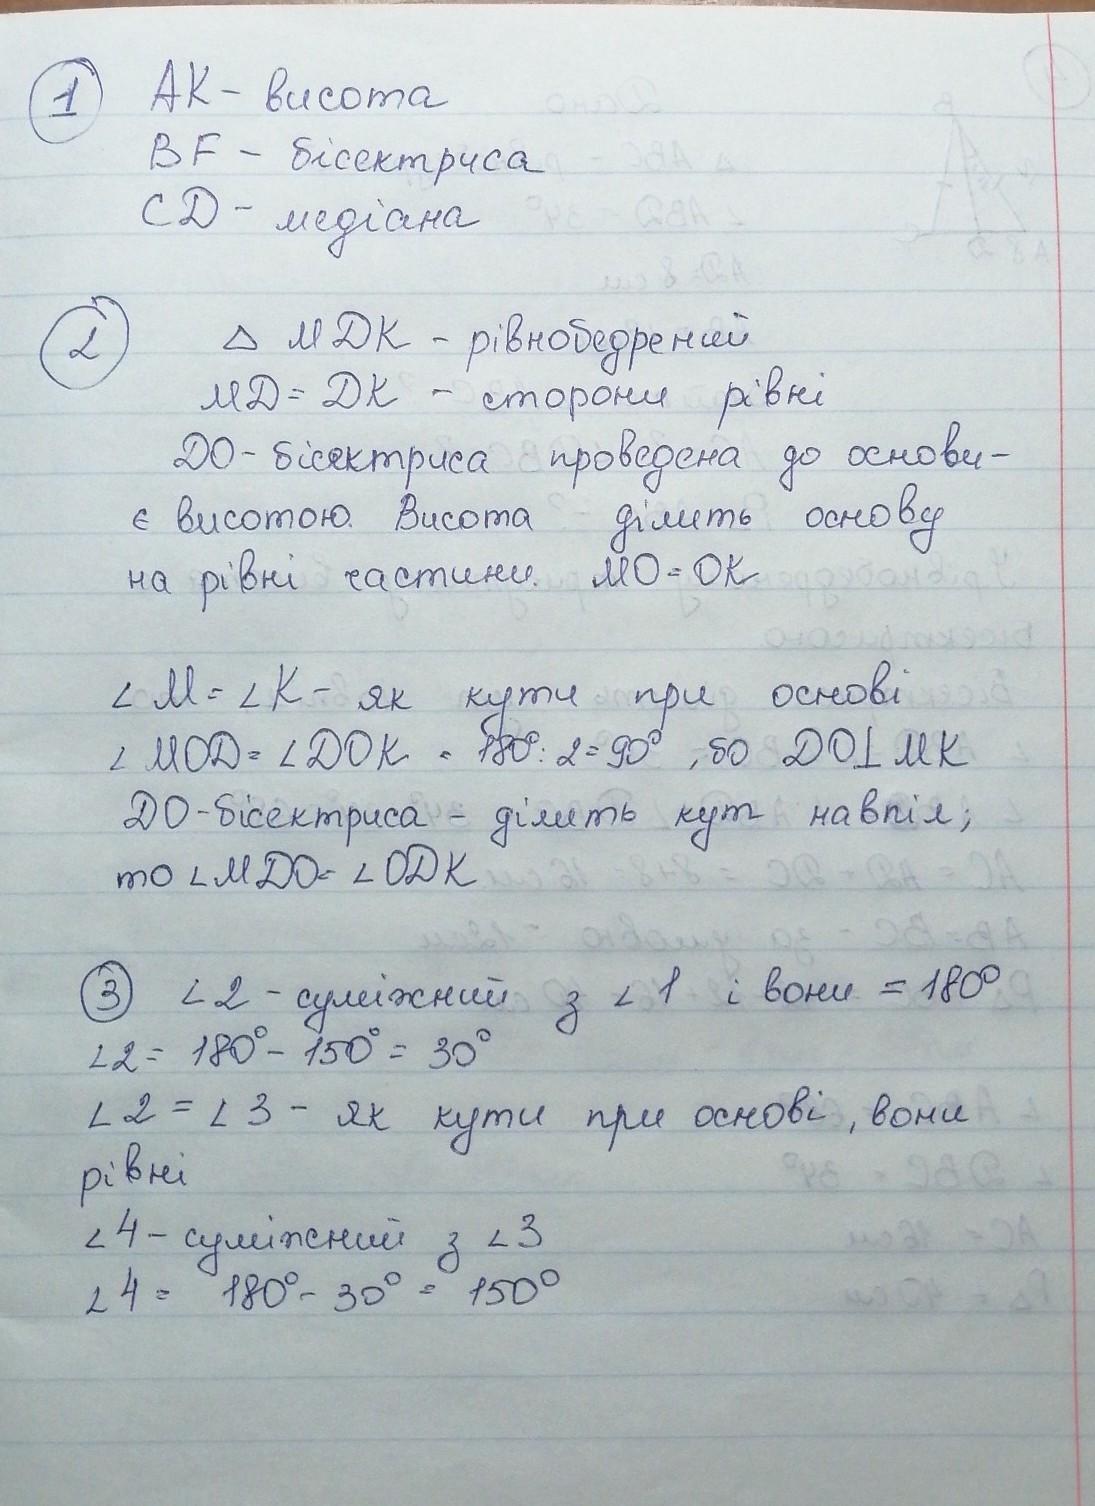 1 АК - висота
BF - бісектриса
CD - медіана
2 △ MDK - рівнобедрений
MD = DK - сторони рівні
DO - бісектриса проведена до основи -
є висотою. Висота ділить основу
на рівні частини. MO = OK
∠M = ∠K - як кути при основі
∠MOD = ∠DOK = 180° : 2 = 90°, бо DO⊥MK
DO - бісектриса - ділить кут навпіл;
то ∠MDO = ∠ODK
3 ∠2 - суміжний з ∠1 і вони = 180°
∠2 = 180° - 150° = 30°
∠2 = ∠3 - як кути при основі, вони
рівні
∠4 - суміжний з ∠3
∠4 = 180° - 30° = 150°